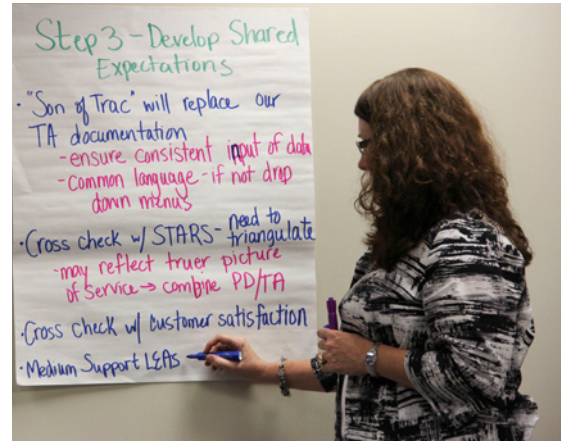 Step 3 - Develop Shared
Expectations
• "Son of Trac" will replace our
TA documentation
- ensure consistent input of data
- common language - if not drop
down menus
• Cross check w/ STARS - need to
triangulate
- may reflect truer picture
of service → combine PD/TA
• Cross check w/ customer satisfaction
• Medium Support LEAs -